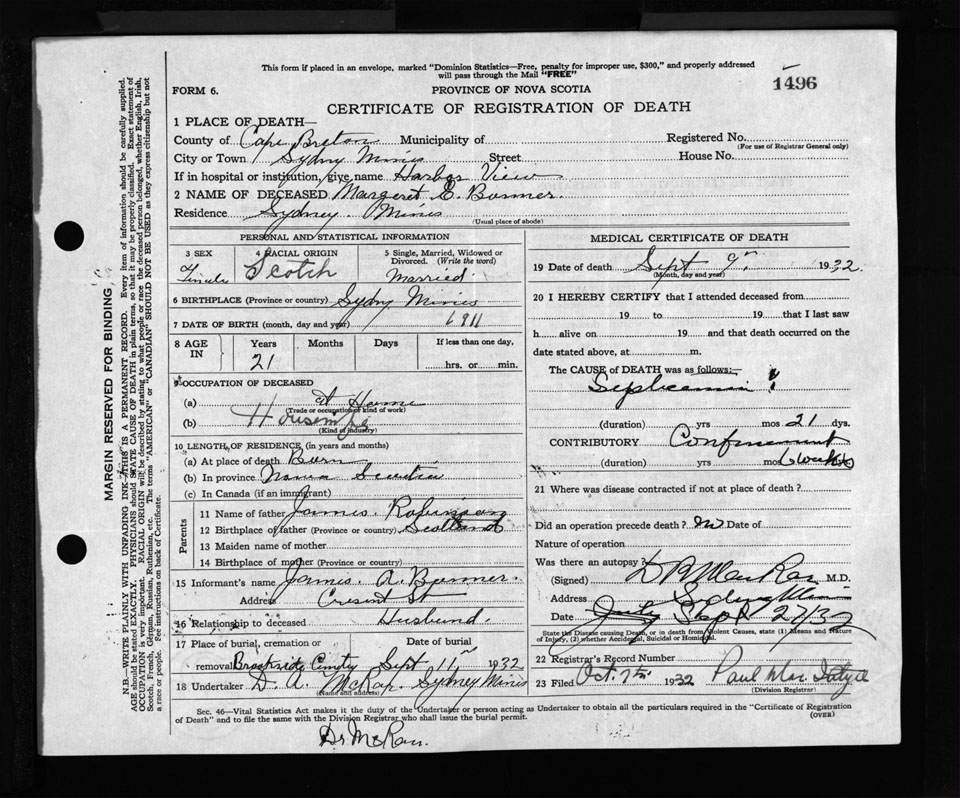 This form if placed in an envelope, marked "Dominion Statistics—Free, penalty for improper use, $300," and properly addressed
will pass through the Mail "FREE"
1496
FORM 6.
PROVINCE OF NOVA SCOTIA
CERTIFICATE OF REGISTRATION OF DEATH
1 PLACE OF DEATH—
County of Cape Breton Municipality of
Registered No.
(For use of Registrar General only)
City or Town Sydny Mines Street House No.
If in hospital or institution, give name Harbor View
2 NAME OF DECEASED Margeret E. Bonner.
Residence Sydney. Mines
(Usual place of abode)
PERSONAL AND STATISTICAL INFORMATION
3 SEX
Female
4 RACIAL ORIGIN
Scotch
5 Single, Married, Widowed or
Divorced. (Write the word)
Married.
6 BIRTHPLACE (Province or country) Sydny Mines
7 DATE OF BIRTH (month, day and year) 1911
8 AGE
IN
Years Months Days
21
If less than one day,
hrs. or min.
9 OCCUPATION OF DECEASED
(a) At Home
(Trade or occupation or kind of work)
(b) Housewife
(Kind of industry)
10 LENGTH OF RESIDENCE (in years and months)
(a) At place of death Born
(b) In province Nova Scotia
(c) In Canada (if an immigrant)
Parents
11 Name of father James. Robinson
12 Birthplace of father (Province or country) Scotland
13 Maiden name of mother
14 Birthplace of mother (Province or country)
15 Informant's name James. A. Bonner.
Address Cresent St
16 Relationship to deceased Husbund.
17 Place of burial, cremation or
removal Brookside Cemetry
Date of burial
Sept 11 1932
18 Undertaker D. A. McRae. Sydney Mines
(Name and address)
MEDICAL CERTIFICATE OF DEATH
19 Date of death Sept 9 1932
(Month, day and year)
20 I HEREBY CERTIFY that I attended deceased from
19 to 19 that I last saw
h alive on 19 and that death occurred on
date stated above, at m.
The CAUSE of DEATH was as follows:
Septicaemia
(duration) yrs mos 21 dys.
CONTRIBUTORY Confinement
(duration) yrs mos 6 weeks
21 Where was disease contracted if not at place of death?
Did an operation precede death? No Date of
Nature of operation
Was there an autopsy?
(Signed) M.D.
Address Sydney Mines
Date July Sept 27/32
State the Disease causing Death, or in death from Violent Causes, state (1) Means and Nature
of Injury, (2) whether Accidental, Suicidal or Homicidal.
22 Registrar's Record Number
23 Filed Oct. 7th 1932 Paul
(Division Registrar)
Sec. 46—Vital Statistics Act makes it the duty of the Undertaker or person acting as Undertaker to obtain all the particulars required in the "Certificate of Registration
of Death" and to file the same with the Division Registrar who shall issue the burial permit.
(OVER)
Dr McRae.
MARGIN RESERVED FOR BINDING
N.B.—WRITE PLAINLY WITH UNFADING INK—THIS IS A PERMANENT RECORD. Every item of information should be carefully supplied.
AGE should be stated EXACTLY. PHYSICIANS should STATE CAUSE OF DEATH in plain terms, so that it may be properly classified. Exact statement of
OCCUPATION is very important. RACIAL ORIGIN will be described by stating to what people or race the deceased person belonged, whether English, Irish,
Scotch, French, German, Russian, Ruthenian, etc. The terms "AMERICAN" or "CANADIAN" SHOULD NOT BE USED as they express citizenship but not
a race or people. See instructions on back of Certificate.